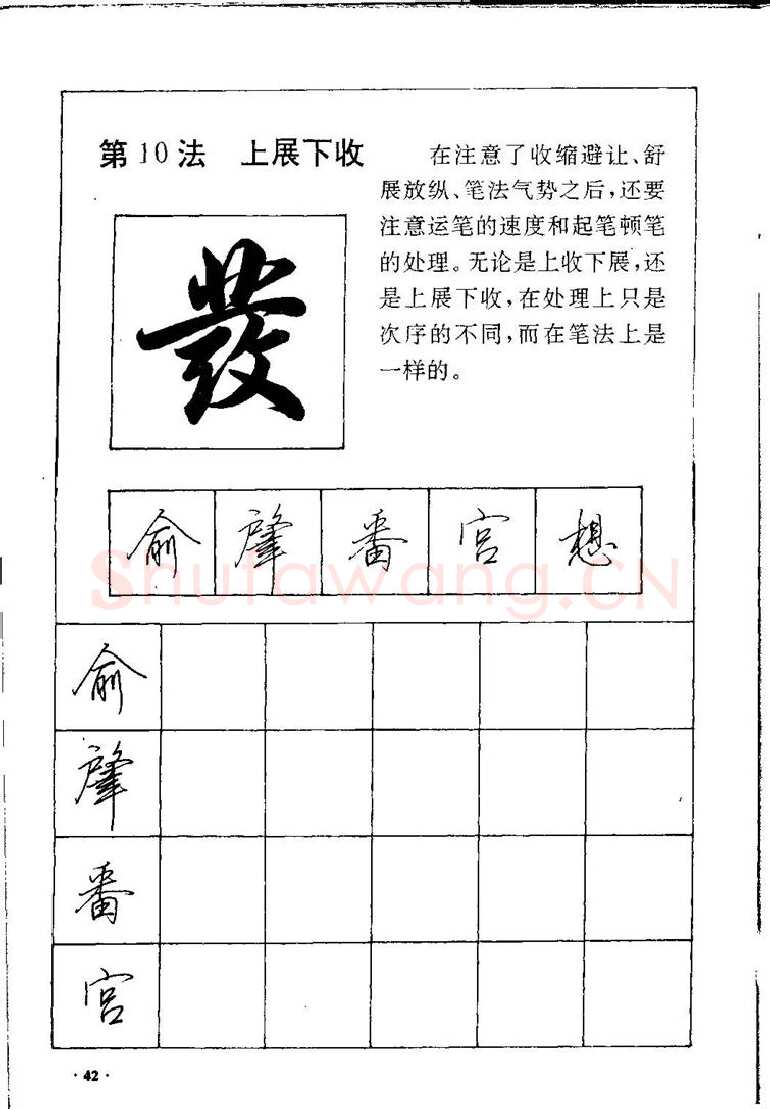 第10法 上展下收
在注意了收缩避让、舒
展放纵、笔法气势之后,还要
注意运笔的速度和起笔顿笔
的处理。无论是上收下展,还
是上展下收,在处理上只是
次序的不同,而在笔法上是
一样的。
發
俞 肇 番 宫 想
Shufawang.CN
俞
肇
番
宫
· 42 ·